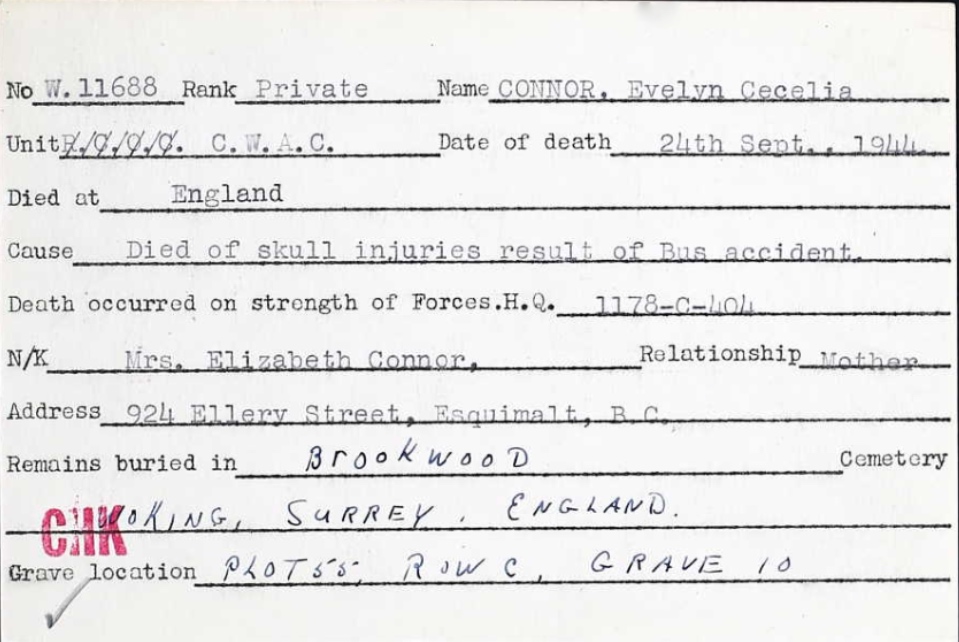 No W.11688 Rank Private Name CONNOR, Evelyn Cecelia
Unit C.W.A.C. Date of death 24th Sept., 1944.
Died at England
Cause Died of skull injuries result of Bus accident.
Death occurred on strength of Forces.H.Q. 1178-C-404
N/K Mrs. Elizabeth Connor, Relationship Mother
Address 924 Ellery Street, Esquimalt, B.C.
Remains buried in BrooKwooD Cemetery
CHK WOKING, SURREY. ENGLAND.
Grave location PLOT 55, ROW C, GRAVE 10